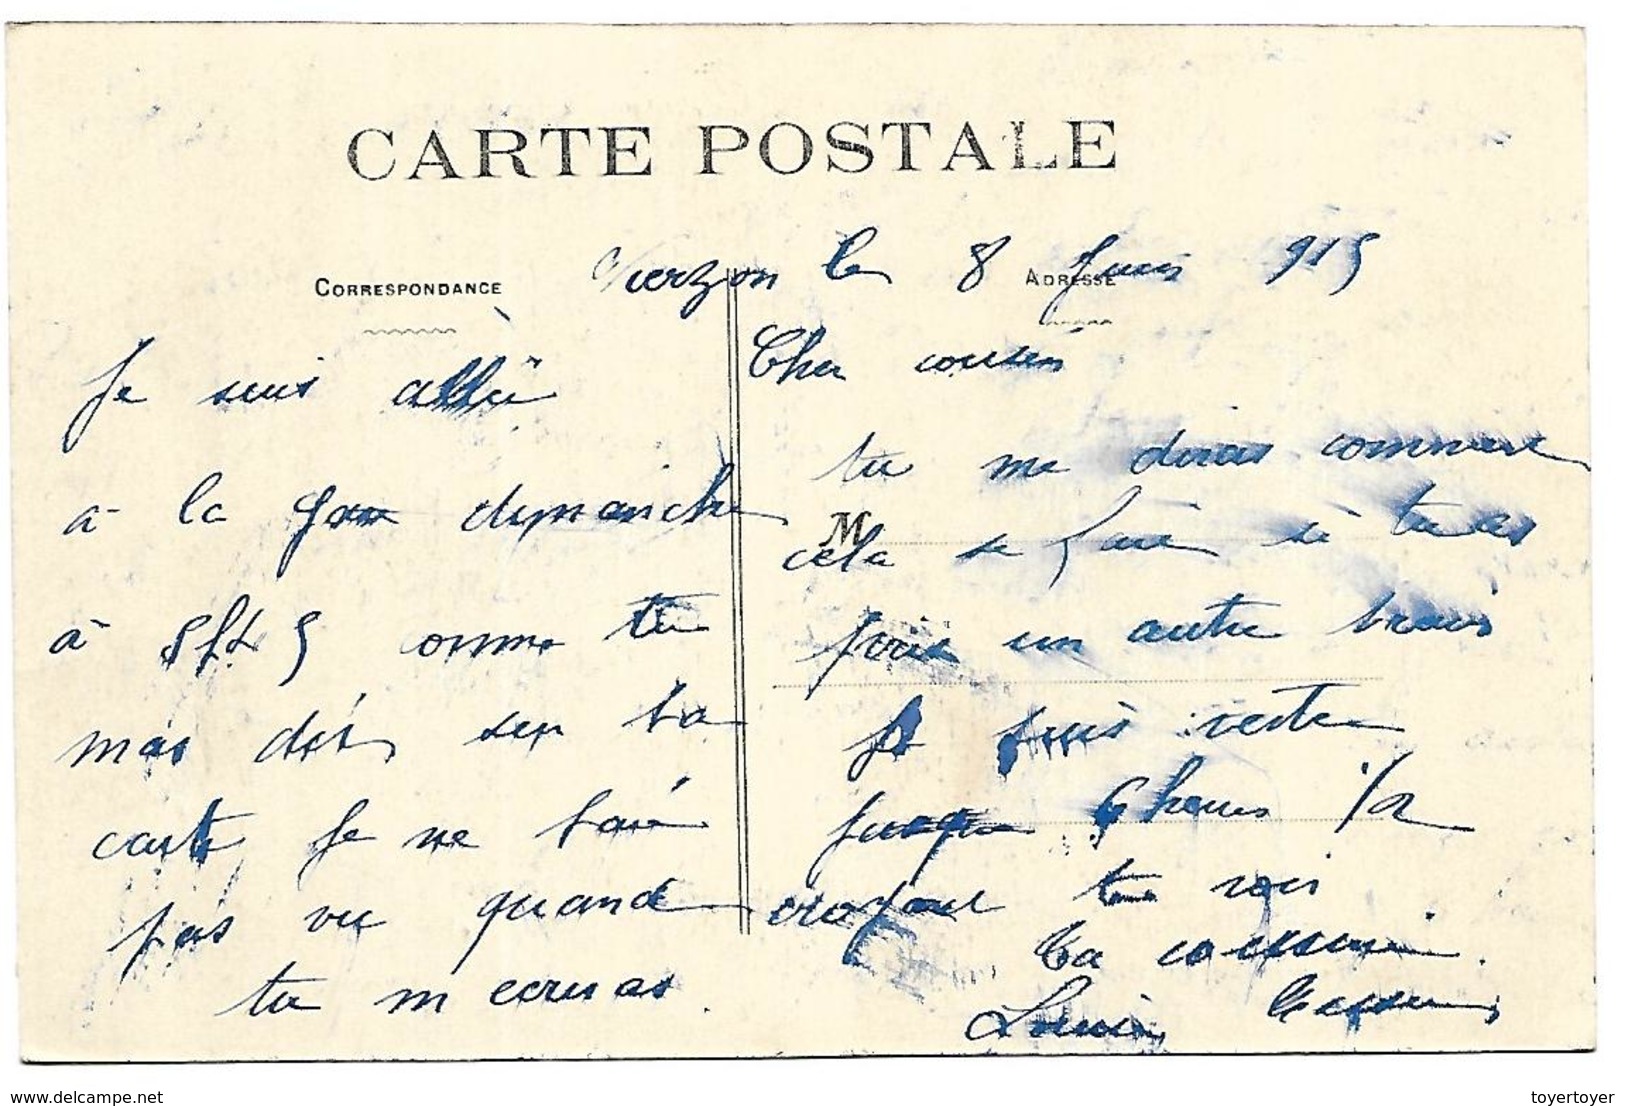 CARTE POSTALE
CORRESPONDANCE
ADRESSE
Vierzon le 8 Juin 915
Je suis allée
à la gare dimanche
à 8h 5 comme tu
mas dit sur ta
carte Je ne tais
pas vu quand
tu m ecriras.
Cher cousin
tu me diras comment
M
cela se fais si tu as
pris un autre train
Je suis restee
jusque 6 heures 1/2
croyant te voir
Ta cousine.
Louise
www.delcampe.net
toyertoyer